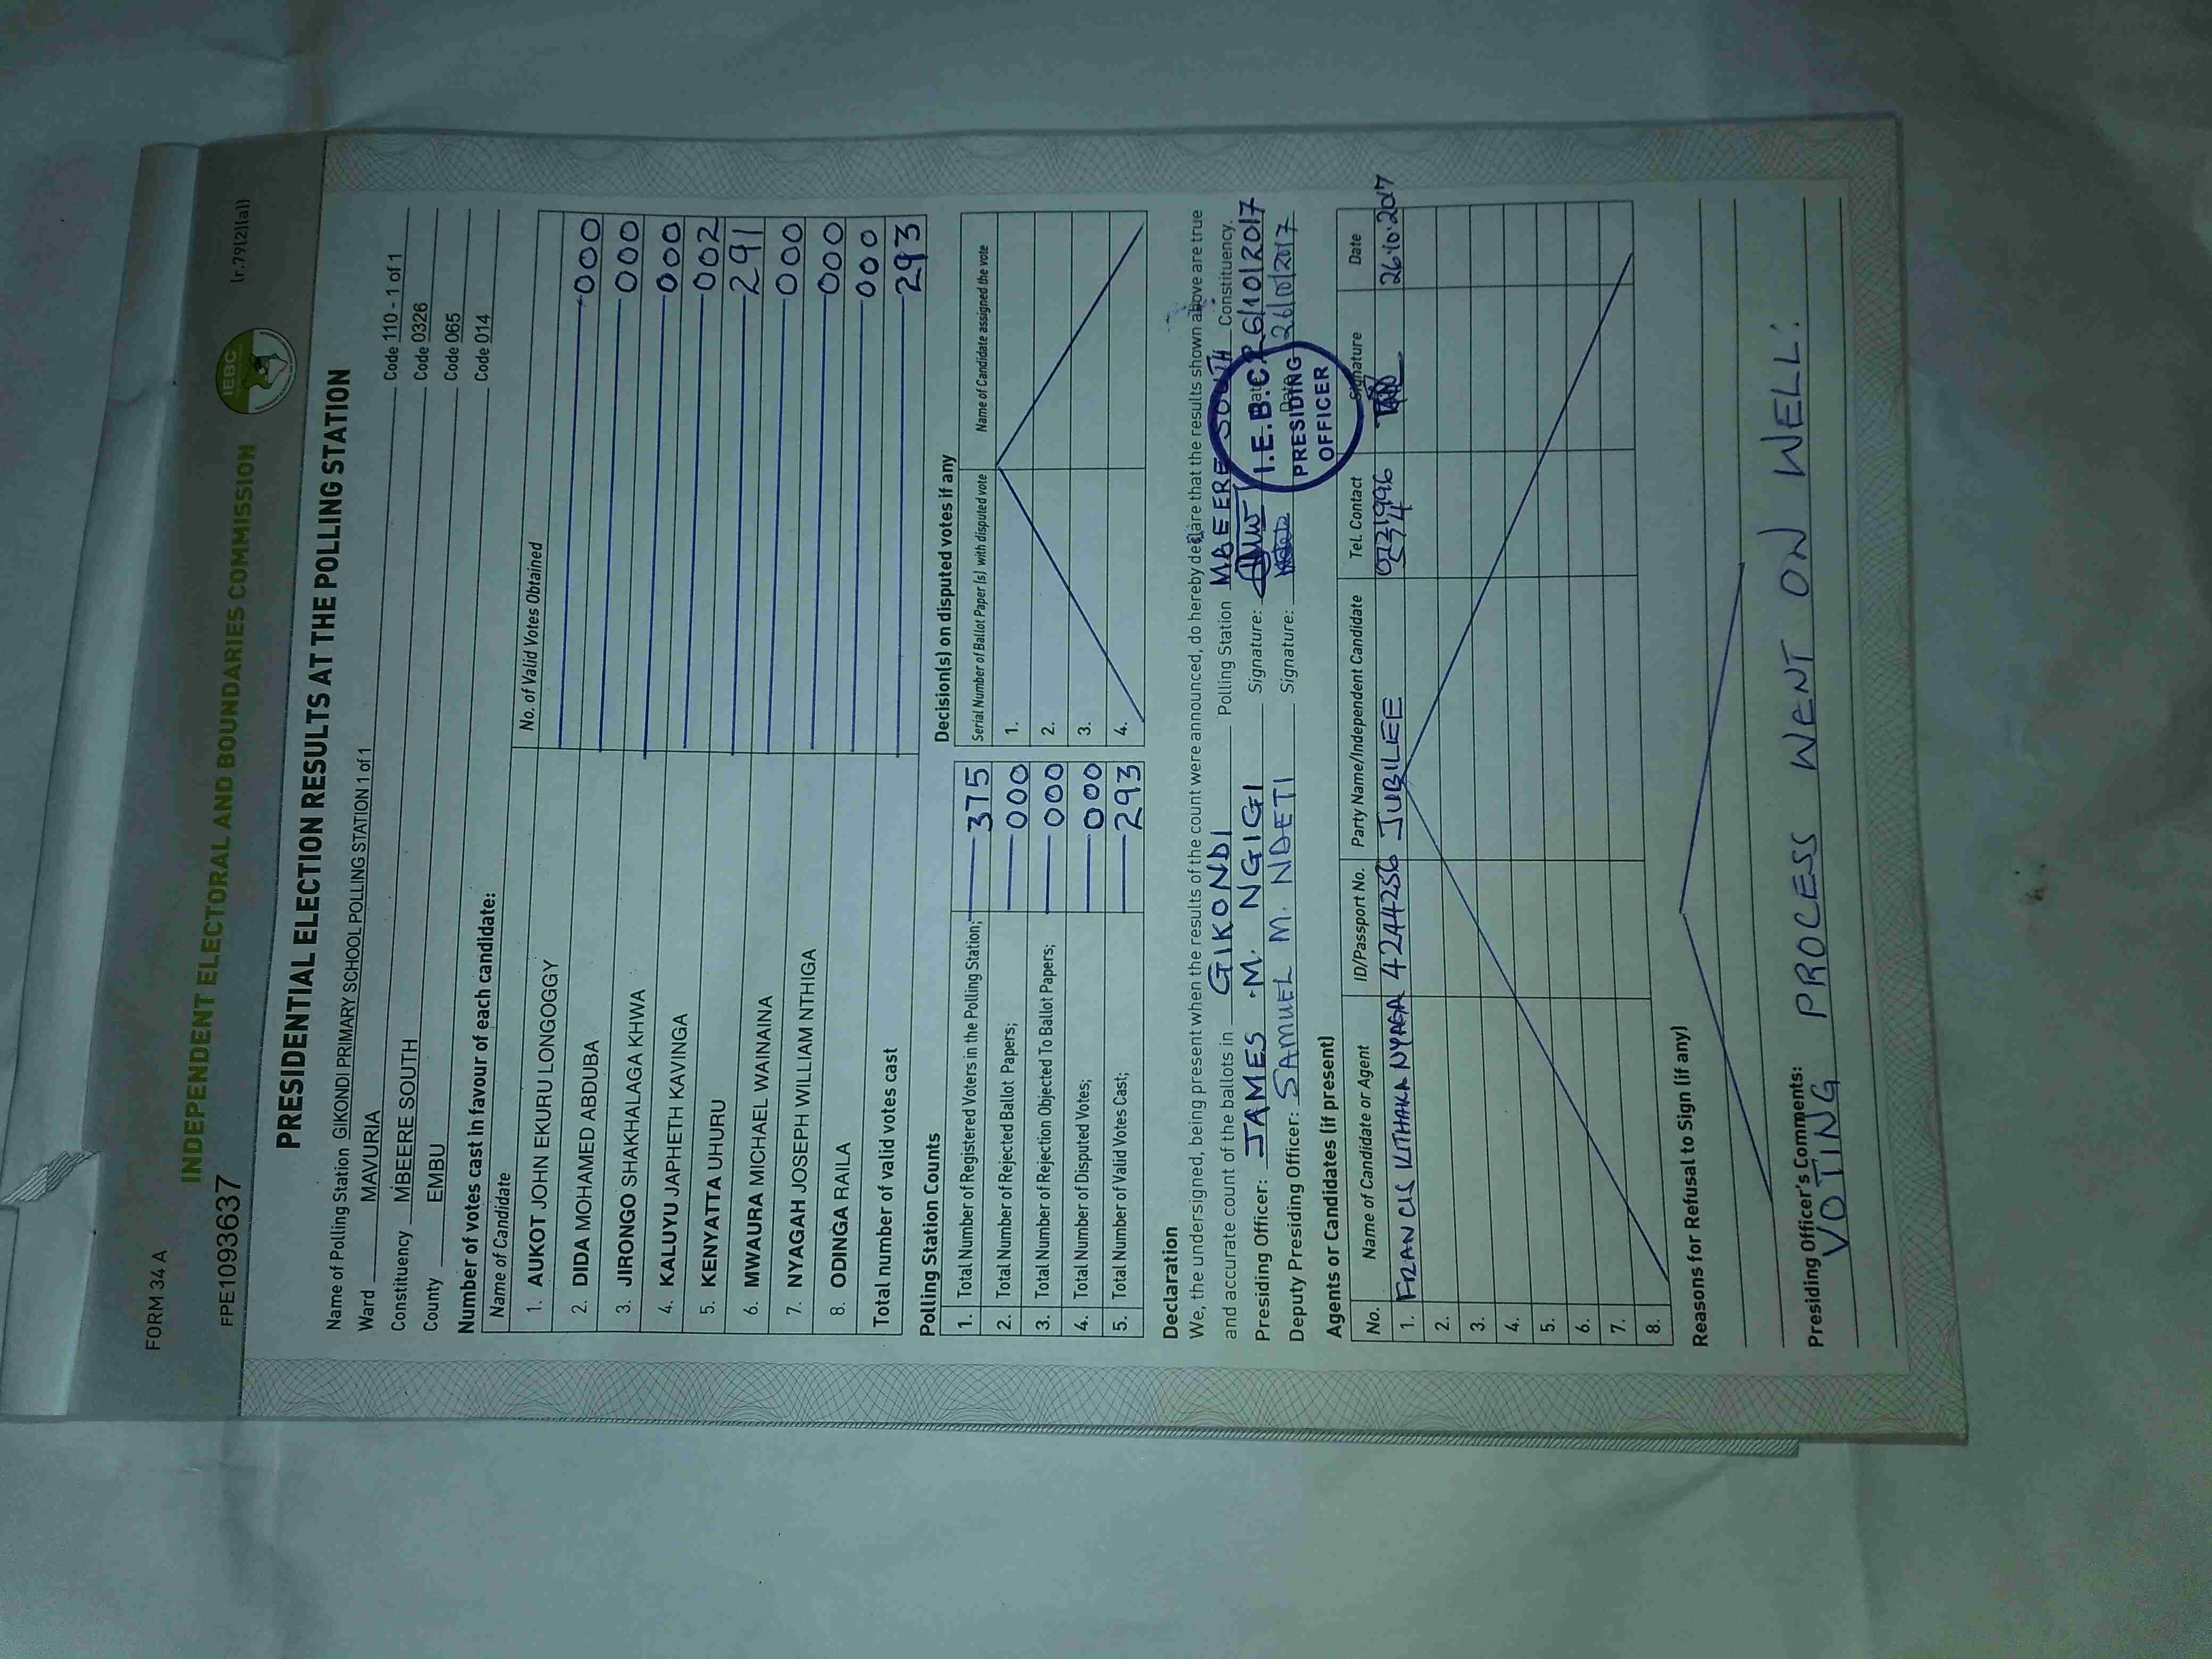 FORM 34 A
INDEPENDENT ELECTORAL AND BOUNDARIES COMMISSION
IEBC
(r.79(2)(a))
FPE1093637
PRESIDENTIAL ELECTION RESULTS AT THE POLLING STATION
Name of Polling Station GIKONDI PRIMARY SCHOOL POLLING STATION 1 of 1 Code 110 - 1 of 1
Ward MAVURIA Code 0326
Constituency MBEERE SOUTH Code 065
County EMBU Code 014
Number of votes cast in favour of each candidate:
Name of Candidate No. of Valid Votes Obtained
1. AUKOT JOHN EKURU LONGOGGY 000
2. DIDA MOHAMED ABDUBA 000
3. JIRONGO SHAKHALAGA KHWA 000
4. KALUYU JAPHETH KAVINGA 002
5. KENYATTA UHURU 291
6. MWAURA MICHAEL WAINAINA 000
7. NYAGAH JOSEPH WILLIAM NTHIGA 000
8. ODINGA RAILA 000
Total number of valid votes cast 293
Polling Station Counts
1. Total Number of Registered Voters in the Polling Station; 375
2. Total Number of Rejected Ballot Papers; 000
3. Total Number of Rejection Objected To Ballot Papers; 000
4. Total Number of Disputed Votes; 000
5. Total Number of Valid Votes Cast; 293
Decision(s) on disputed votes if any
Serial Number of Ballot Paper (s) with disputed vote Name of Candidate assigned the vote
1.
2.
3.
4.
Declaration
We, the undersigned, being present when the results of the count were announced, do hereby declare that the results shown above are true
and accurate count of the ballots in GIKONDI Polling Station MBEERE SOUTH Constituency.
Presiding Officer: JAMES .M. NGIGI Signature: Date 26/10/2017
Deputy Presiding Officer: SAMUEL M. NDETI Signature: Date 26/10/2017
I.E.B.C.
PRESIDING
OFFICER
Agents or Candidates (if present)
No. Name of Candidate or Agent ID/Passport No. Party Name/Independent Candidate Tel. Contact Signature Date
1. FRANCIS KITHAKA NYAGA 42444256 JUBILEE 26.10.2017
2.
3.
4.
5.
6.
7.
8.
Reasons for Refusal to Sign (if any)
Presiding Officer's Comments:
VOTING PROCESS WENT ON WELL.